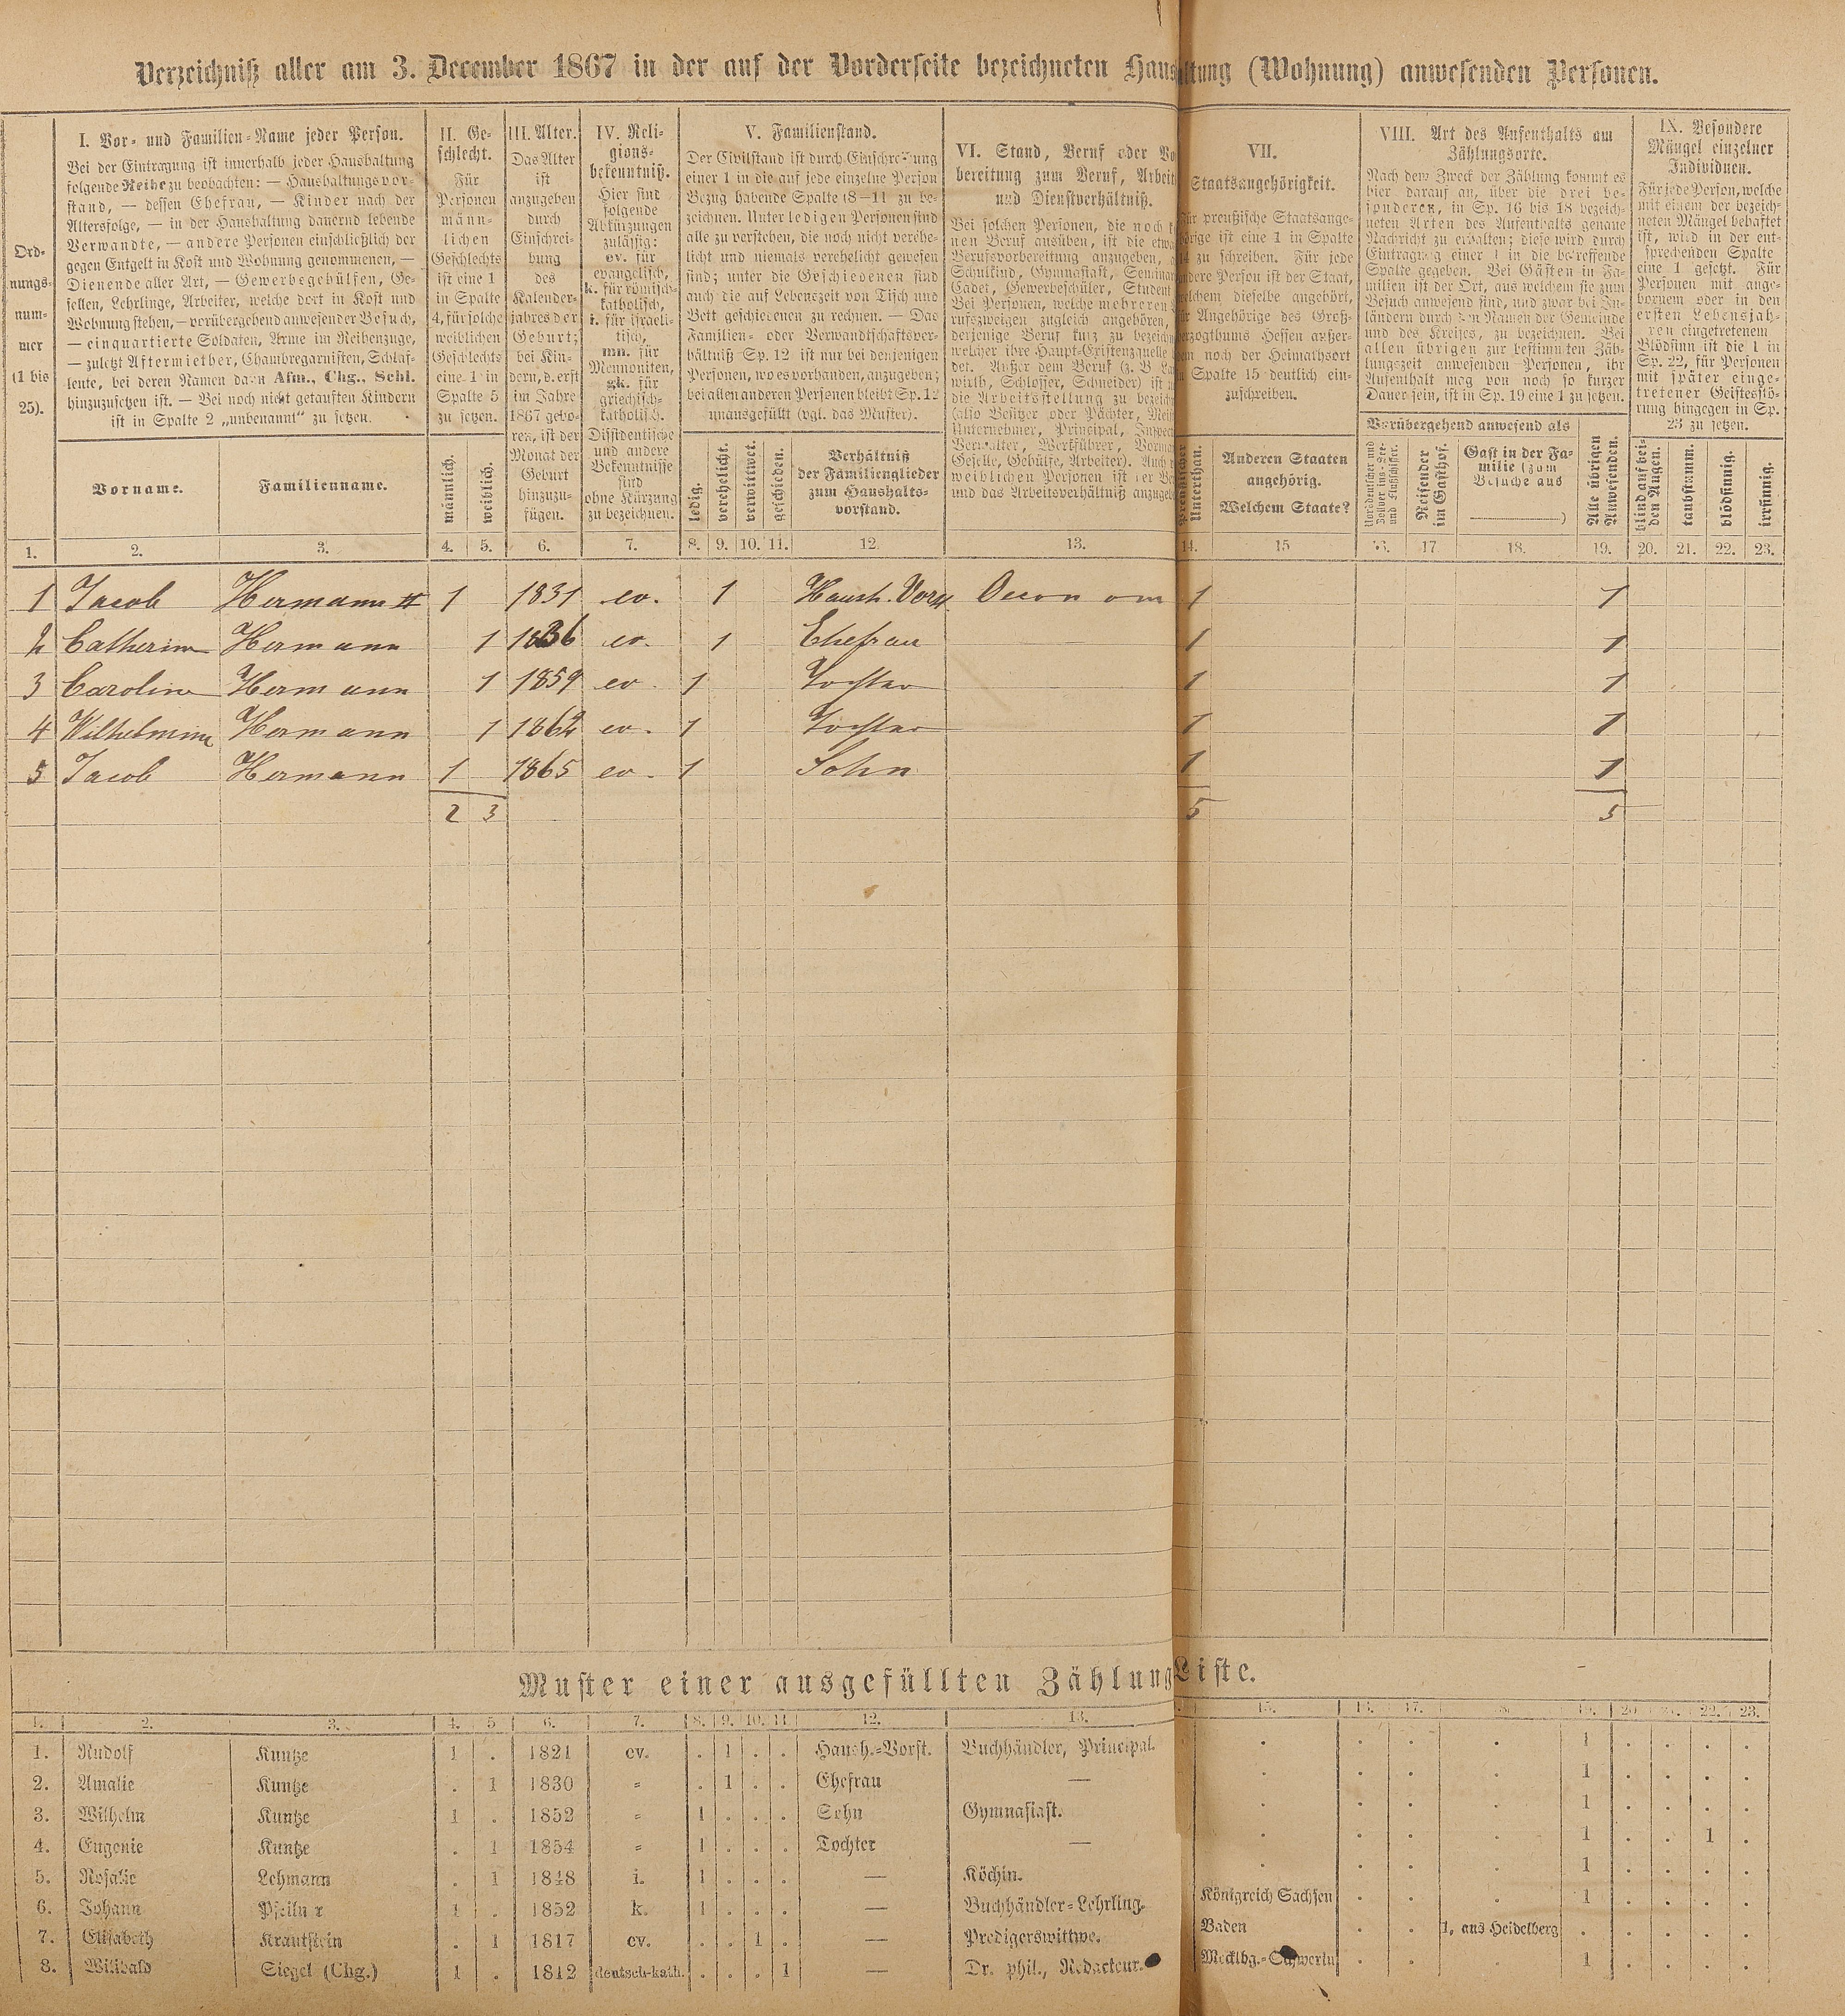 Verzeichniß aller am 3. December 1867 in der auf der Vorderseite bezeichneten Haushaltung (Wohnung) anwesenden Personen.
Ord-
nungs-
num-
mer
(1 bis
25).
I. Vor- und Familien-Name jeder Person.
Bei der Eintragung ist innerhalb jeder Haushaltung
folgende Reihe zu beobachten: — Haushaltungsvor-
stand, — dessen Ehefrau, — Kinder nach der
Altersfolge, — in der Haushaltung dauernd lebende
Verwandte, — andere Personen einschließlich der
gegen Entgelt in Kost und Wohnung genommenen, —
Dienende aller Art, — Gewerbsgehülfen, Ge-
sellen, Lehrlinge, Arbeiter, welche dort in Kost und
Wohnung stehen, — vorübergehend anwesender Besuch,
— einquartierte Soldaten, Arme im Reihenzuge,
— zuletzt Aftermiether, Chambregarnisten, Schlaf-
leute, bei deren Namen dann Afm., Chg., Schl.
hinzuzusetzen ist. — Bei noch nicht getauften Kindern
ist in Spalte 2 „unbenannt“ zu setzen.
Vorname.
Familienname.
II. Ge-
schlecht.
Für
Personen
männ-
lichen
Geschlechts
ist eine 1
in Spalte
4, für solche
weiblichen
Geschlechts
eine 1 in
Spalte 5
zu setzen.
männlich.
weiblich.
III. Alter.
Das Alter
ist
anzugeben
durch
Einschrei-
bung
des
Kalender-
jahres der
Geburt;
bei Kin-
dern, d. erst
im Jahre
1867 gebo-
ren, ist der
Monat der
Geburt
hinzuzu-
fügen.
IV. Reli-
gions-
bekenntniß.
Hier sind
folgende
Abkürzungen
zulässig:
ev. für
evangelisch,
k. für römisch-
katholisch,
i. für israeli-
tisch,
mn. für
Mennoniten,
gk. für
griechisch-
katholisch.
Dissidentische
und andere
Bekenntnisse
sind
ohne Kürzung
zu bezeichnen.
V. Familienstand.
Der Civilstand ist durch Einschreibung
einer 1 in die auf jede einzelne Person
Bezug habende Spalte (8—11) zu be-
zeichnen. Unter ledigen Personen sind
alle zu verstehen, die noch nicht verehe-
licht und niemals verehelicht gewesen
sind; unter die Geschiedenen sind
auch die auf Lebenszeit von Tisch und
Bett geschiedenen zu rechnen. — Das
Familien- oder Verwandtschaftsver-
hältniß Sp. 12 ist nur bei denjenigen
Personen, wo es vorhanden, anzugeben;
bei allen anderen Personen bleibt Sp. 12
unausgefüllt (vgl. das Muster).
ledig.
verehelicht.
verwittwet.
geschieden.
Verhältniß
der Familienglieder
zum Haushalts-
vorstand.
VI. Stand, Beruf oder Vo
bereitung zum Beruf, Arbeit
und Dienstverhältniß.
Bei solchen Personen, die noch k
nen Beruf ausüben, ist die etwa
Berufsvorbereitung anzugeben,
Schulkind, Gymnasiast, Seminar
Cadet, Gewerbeschüler, Student
Bei Personen, welche mehreren
rufszweigen zugleich angehören,
derjenige Beruf kurz zu bezeichn
welcher ihre Haupt-Existenzquelle
det. Außer dem Beruf (z. B. La
wirth, Schlosser, Schneider) ist
die Arbeitsstellung zu bezeich
(also Besitzer oder Pächter, Mei
Unternehmer, Principal, Inspec
Verwalter, Werkführer, Vorma
Geselle, Gehülfe, Arbeiter). Auch
weiblichen Personen ist der Be
und das Arbeitsverhältniß anzuge
VII.
Staatsangehörigkeit.
Für preußische Staatsange-
hörige ist eine 1 in Spalte
14 zu schreiben. Für jede
andere Person ist der Staat,
welchem dieselbe angehört,
für Angehörige des Groß-
herzogthums Hessen außer-
dem noch der Heimathsort
in Spalte 15 deutlich ein-
zuschreiben.
Preußischer
Unterthan.
Anderen Staaten
angehörig.
Welchem Staate?
VIII. Art des Aufenthalts am
Zählungsorte.
Nach dem Zweck der Zählung kommt es
hier darauf an, über die drei be-
sonderen, in Sp. 16 bis 18 bezeich-
neten Arten des Aufenthalts genaue
Nachricht zu erhalten; diese wird durch
Eintragung einer 1 in die betreffende
Spalte gegeben. Bei Gästen in Fa-
milien ist der Ort, aus welchem sie zum
Besuch anwesend sind, und zwar bei In-
ländern durch den Namen der Gemeinde
und des Kreises, zu bezeichnen. Bei
allen übrigen zur bestimmten Zäh-
lungszeit anwesenden Personen, ihr
Aufenthalt mag von noch so kurzer
Dauer sein, ist in Sp. 19 eine 1 zu setzen.
Vorübergehend anwesend als
Norddeutscher und
Zollver ins-See-
und Flußschiffer.
Reisender
im Gasthof.
Gast in der Fa-
milie (zum
Besuche aus
)
Alle übrigen
Anwesenden.
IX. Besondere
Mängel einzelner
Individuen.
Für jede Person, welche
mit einem der bezeich-
neten Mängel behaftet
ist, wird in der ent-
sprechenden Spalte
eine 1 gesetzt. Für
Personen mit ange-
bornem oder in den
ersten Lebensjah-
ren eingetretenem
Blödsinn ist die 1 in
Sp. 22, für Personen
mit später einge-
tretener Geistesstö-
rung hingegen in Sp.
23 zu setzen.
blind auf bei-
den Augen.
taubstumm.
blödsinnig.
irrsinnig.
1. 2. 3. 4. 5. 6. 7. 8. 9. 10. 11. 12. 13. 14. 15 16. 17. 18. 19. 20. 21. 22. 23.
1 Jacob Hermann II 1 1831 ev. 1 Haush. Vorst. Oeconom 1 1
2 Catherine Hermann 1 1836 ev. 1 Ehefrau — 1 1
3 Caroline Hermann 1 1859 ev. 1 Tochter 1 1
4 Wilhelmine Hermann 1 1862 ev. 1 Tochter 1 1
5 Jacob Hermann 1 1865 ev. 1 Sohn 1 1
2 3 5 5
Muster einer ausgefüllten Zählung Liste.
1. 2. 3. 4. 5 6. 7. 8. 9. 10. 11 12. 13. 15. 16. 17. 19. 20 21. 22. 23.
1. Rudolf Kuntze 1 . 1821 ev. . 1 . . Haush.-Vorst. Buchhändler, Principal. . . . . 1 . . . .
2. Amalie Kuntze . 1 1830 = . 1 . . Ehefrau — . . . . 1 . . . .
3. Wilhelm Kuntze 1 . 1852 = 1 . . . Sohn Gymnasiast. . . . . 1 . . . .
4. Eugenie Kuntze . 1 1854 = 1 . . . Tochter — . . . . 1 . . 1 .
5. Rosalie Lehmann . 1 1848 i. 1 . . . — Köchin. . . . . 1 . . . .
6. Johann Pfeiln r 1 . 1852 k. 1 . . . — Buchhändler-Lehrling. Königreich Sachsen . . . 1 . . . .
7. Elisabeth Krautstein . 1 1817 ev. . . 1 . — Predigerswittwe. Baden . . 1, aus Heidelberg . . . . .
8. Wilibald Siegel (Chg.) 1 . 1812 deutsch-kath. . . . 1 — Dr. phil., Redacteur. Mecklbg.-Schwerin . . . 1 . . . .